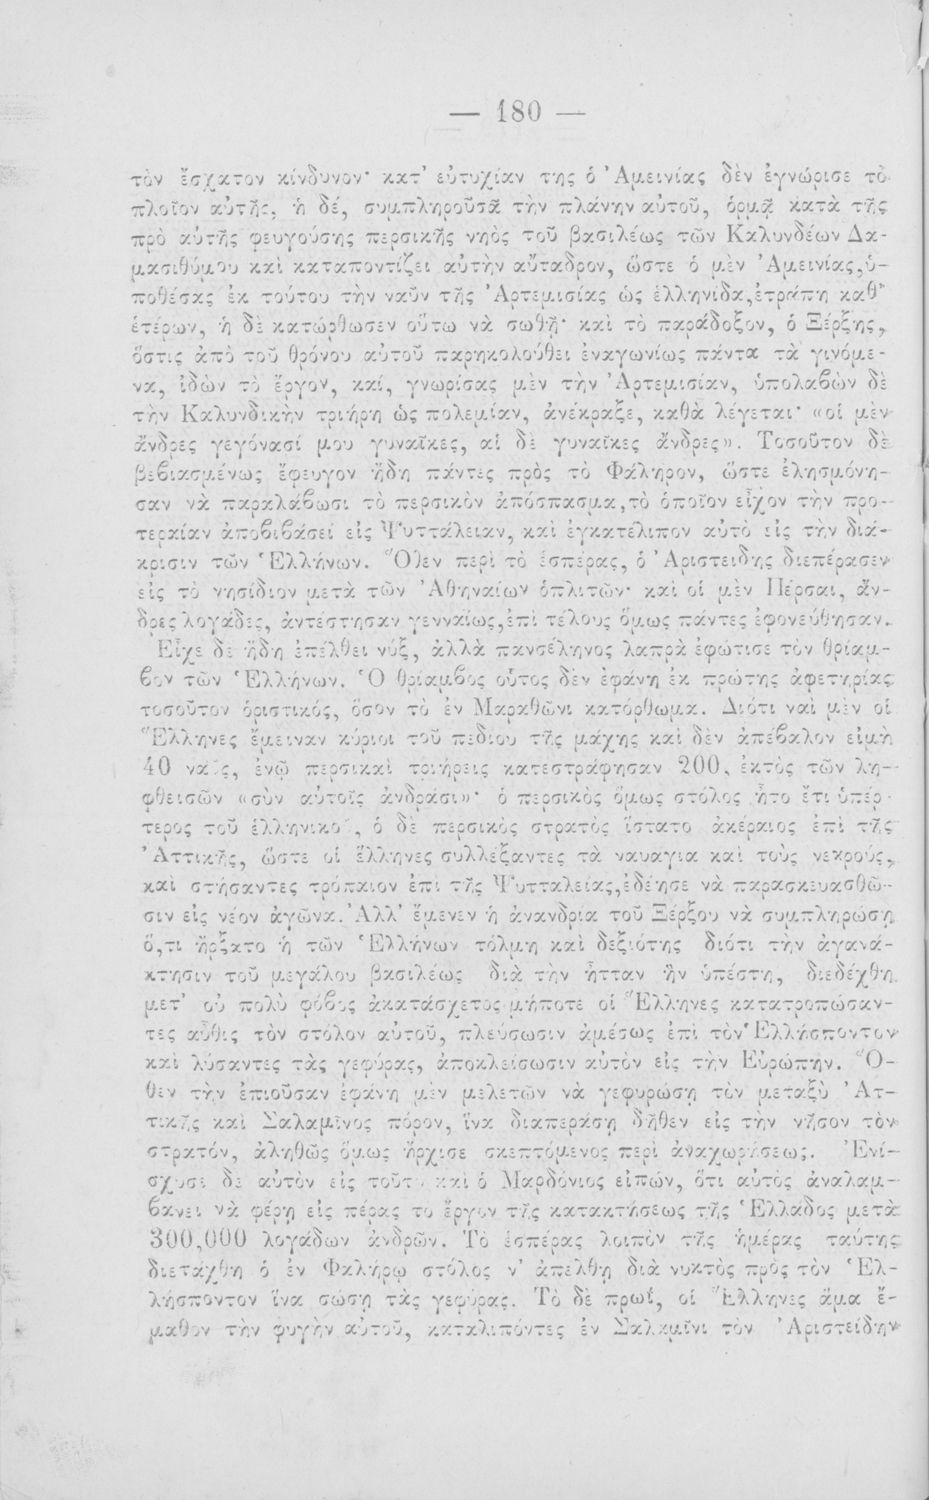 — 180 —
τὸν ἔσχατον κίνδυνον· κατ' εὐτυχίαν της ὁ Ἀμεινίας δὲν ἐγνώρισε τὸ
πλοῖον αὐτῆς, ἡ δέ, συμπληροῦσα τὴν πλάνην αὐτοῦ, ὁρμᾷ κατὰ τῆς
πρὸ αὐτῆς φευγούσης περσικῆς νηὸς τοῦ βασιλέως τῶν Καλυνδέων Δα-
μασιθύμου καὶ καταποντίζει αὐτὴν αὔταδρον, ὥστε ὁ μὲν Ἀμεινίας, ὑ-
ποθέσας ἐκ τούτου τὴν ναῦν τῆς Ἀρτεμισίας ὡς ἑλληνίδα, ἐτράπη καθ'
ἑτέρων, ἡ δὲ κατώρθωσεν οὕτω νὰ σωθῇ· καὶ τὸ παράδοξον, ὁ Ξέρξης,
ὅστις ἀπὸ τοῦ θρόνου αὐτοῦ παρηκολούθει ἐναγωνίως πάντα τὰ γινόμε-
να, ἰδὼν τὸ ἔργον, καί, γνωρίσας μὲν τὴν Ἀρτεμισίαν, ὑπολαβὼν δὲ
τὴν Καλυνδικὴν τριήρη ὡς πολεμίαν, ἀνέκραξε, καθὰ λέγεται· «οἱ μὲν
ἄνδρες γεγόνασί μου γυναῖκες, αἱ δὲ γυναῖκες ἄνδρες». Τοσοῦτον δὲ
βεβιασμένως ἔφευγον ἤδη πάντες πρὸς τὸ Φάληρον, ὥστε ἐλησμόνη-
σαν νὰ παραλάβωσι τὸ περσικὸν ἀπόσπασμα, τὸ ὁποῖον εἶχον τὴν προ-
τεραίαν ἀποβιβάσει εἰς Ψυττάλειαν, καὶ ἐγκατέλιπον αὐτὸ εἰς τὴν διά-
κρισιν τῶν Ἑλλήνων. Ὅθεν περὶ τὸ ἑσπέρας, ὁ Ἀριστείδης διεπέρασεν
εἰς τὸ νησίδιον μετὰ τῶν Ἀθηναίων ὁπλιτῶν· καὶ οἱ μὲν Πέρσαι, ἄν-
δρες λογάδες, ἀντέστησαν γενναίως, ἐπὶ τέλους ὅμως πάντες ἐφονεύθησαν.
Εἶχε δὲ ἤδη ἐπέλθει νύξ, ἀλλὰ πανσέληνος λαπρὰ ἐφώτισε τὸν θρίαμ-
βον τῶν Ἑλλήνων. Ὁ θρίαμβος οὗτος δὲν ἐφάνη ἐκ πρώτης ἀφετηρίας
τοσοῦτον ὁριστικός, ὅσον τὸ ἐν Μαραθῶνι κατόρθωμα. Διότι ναὶ μὲν οἱ
Ἕλληνες ἔμειναν κύριοι τοῦ πεδίου τῆς μάχης καὶ δὲν ἀπέβαλον εἰμὴ
40 ναῦς, ἐνῷ περσικαὶ τριήρεις κατεστράφησαν 200, ἐκτὸς τῶν λη-
φθεισῶν «σὺν αὐτοῖς ἀνδράσι»· ὁ περσικὸς ὅμως στόλος ἦτο ἔτι ὑπέρ-
τερος τοῦ ἑλληνικοῦ, ὁ δὲ περσικὸς στρατὸς ἵστατο ἀκέραιος ἐπὶ τῆς
Ἀττικῆς, ὥστε οἱ ἕλληνες συλλέξαντες τὰ ναυαγια καὶ τοὺς νεκρούς,
καὶ στήσαντες τρόπαιον ἐπὶ τῆς Ψυτταλείας, ἐδέησε νὰ παρασκευασθῶ-
σιν εἰς νέον ἀγῶνα. Ἀλλ' ἔμενεν ἡ ἀνανδρία τοῦ Ξέρξου νὰ συμπληρώσῃ
ὅ,τι ἤρξατο ἡ τῶν Ἑλλήνων τόλμη καὶ δεξιότης διότι τὴν ἀγανά-
κτησιν τοῦ μεγάλου βασιλέως διὰ τὴν ἧτταν ἣν ὑπέστη, διεδέχθη
μετ' οὐ πολὺ φόβος ἀκατάσχετος μήποτε οἱ Ἕλληνες κατατροπώσαν-
τες αὖθις τὸν στόλον αὐτοῦ, πλεύσωσιν ἀμέσως ἐπὶ τὸν Ἑλλήσποντον
καὶ λύσαντες τὰς γεφύρας, ἀποκλείσωσιν αὐτὸν εἰς τὴν Εὐρώπην. Ὅ-
θεν τὴν ἐπιοῦσαν ἐφάνη μὲν μελετῶν νὰ γεφυρώσῃ τὸν μεταξὺ Ἀτ-
τικῆς καὶ Σαλαμῖνος πόρον, ἵνα διαπεράσῃ δῆθεν εἰς τὴν νῆσον τὸν
στρατόν, ἀληθῶς ὅμως ἤρχισε σκεπτόμενος περὶ ἀναχωρήσεως. Ἐνί-
σχυσε δὲ αὐτὸν εἰς τοῦτο καὶ ὁ Μαρδόνιος εἰπών, ὅτι αὐτὸς ἀναλαμ-
βάνει νὰ φέρῃ εἰς πέρας το ἔργον τῆς κατακτήσεως τῆς Ἑλλάδος μετὰ
300,000 λογάδων ἀνδρῶν. Τὸ ἑσπέρας λοιπὸν τῆς ἡμέρας ταύτης
διετάχθη ὁ ἐν Φαλήρῳ στόλος ν' ἀπέλθῃ διὰ νυκτὸς πρὸς τὸν Ἑλ-
λήσποντον ἵνα σώσῃ τὰς γεφύρας. Τὸ δὲ πρωΐ, οἱ Ἕλληνες ἅμα ἔ-
μαθον τὴν φυγὴν αὐτοῦ, καταλιπόντες ἐν Σαλαμῖνι τὸν Ἀριστείδην